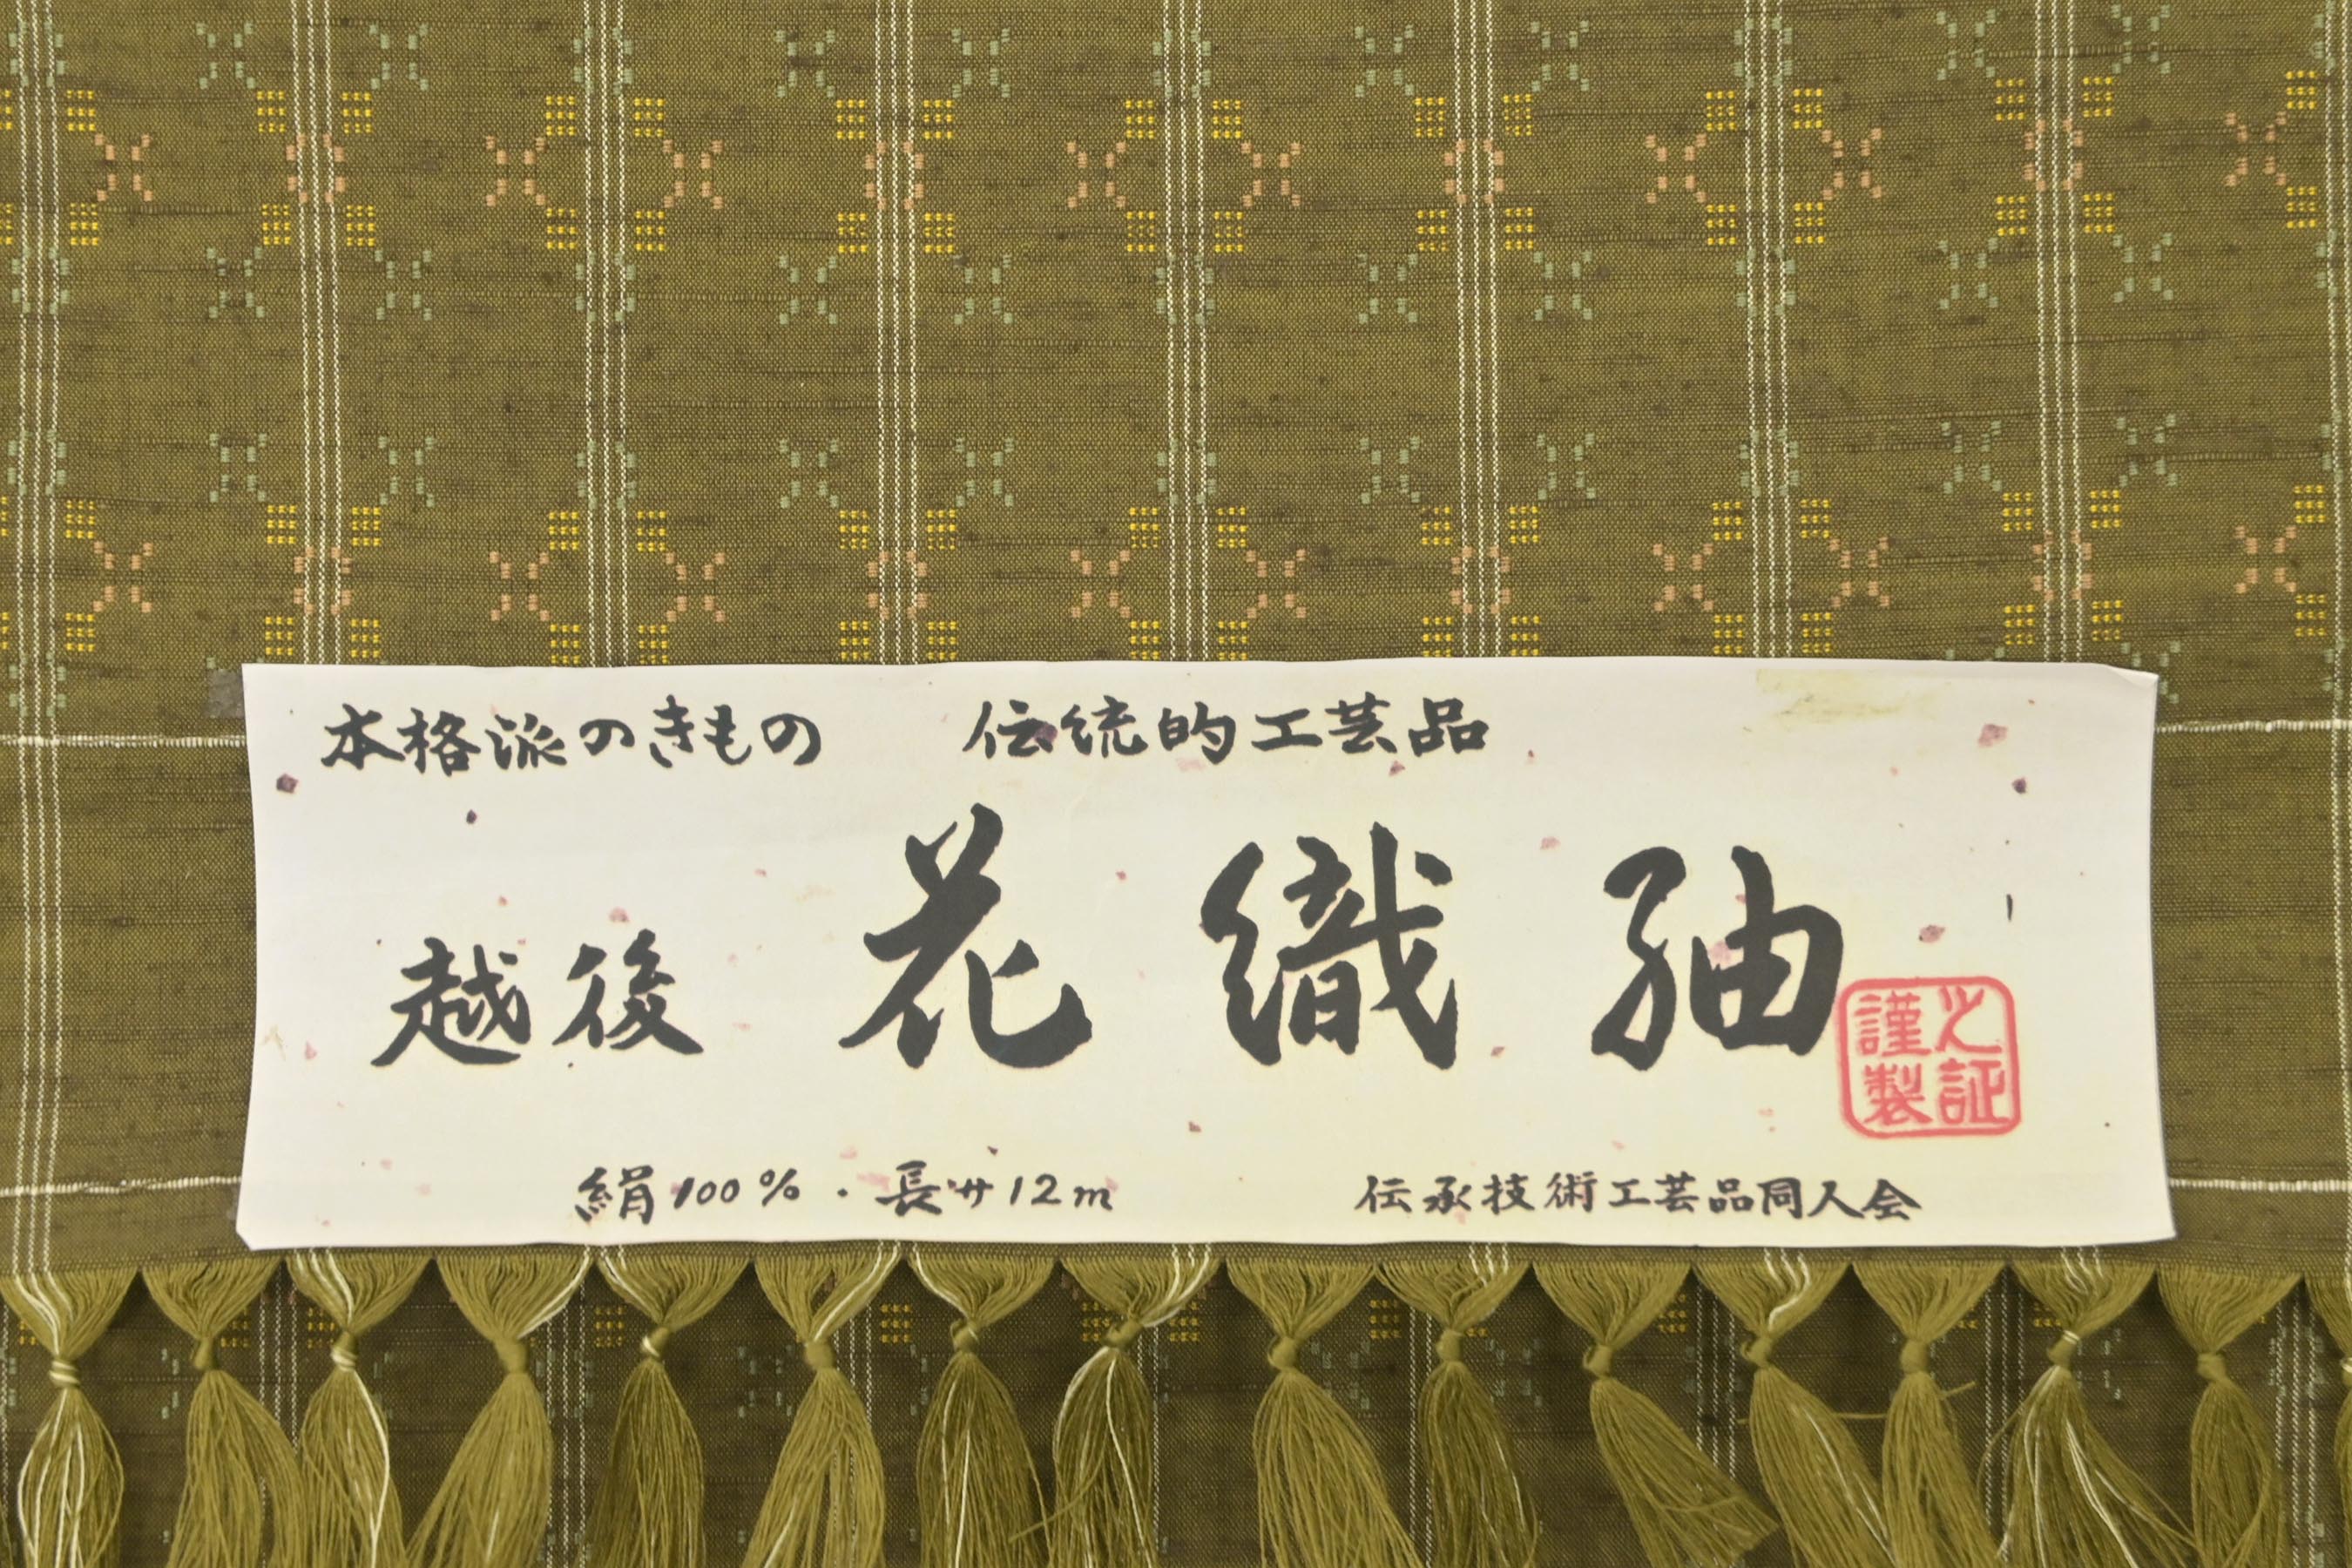 本格派のきもの 伝統的工芸品
越後 花織紬
謹製之証
絹100%・長サ12m 伝承技術工芸品同人会